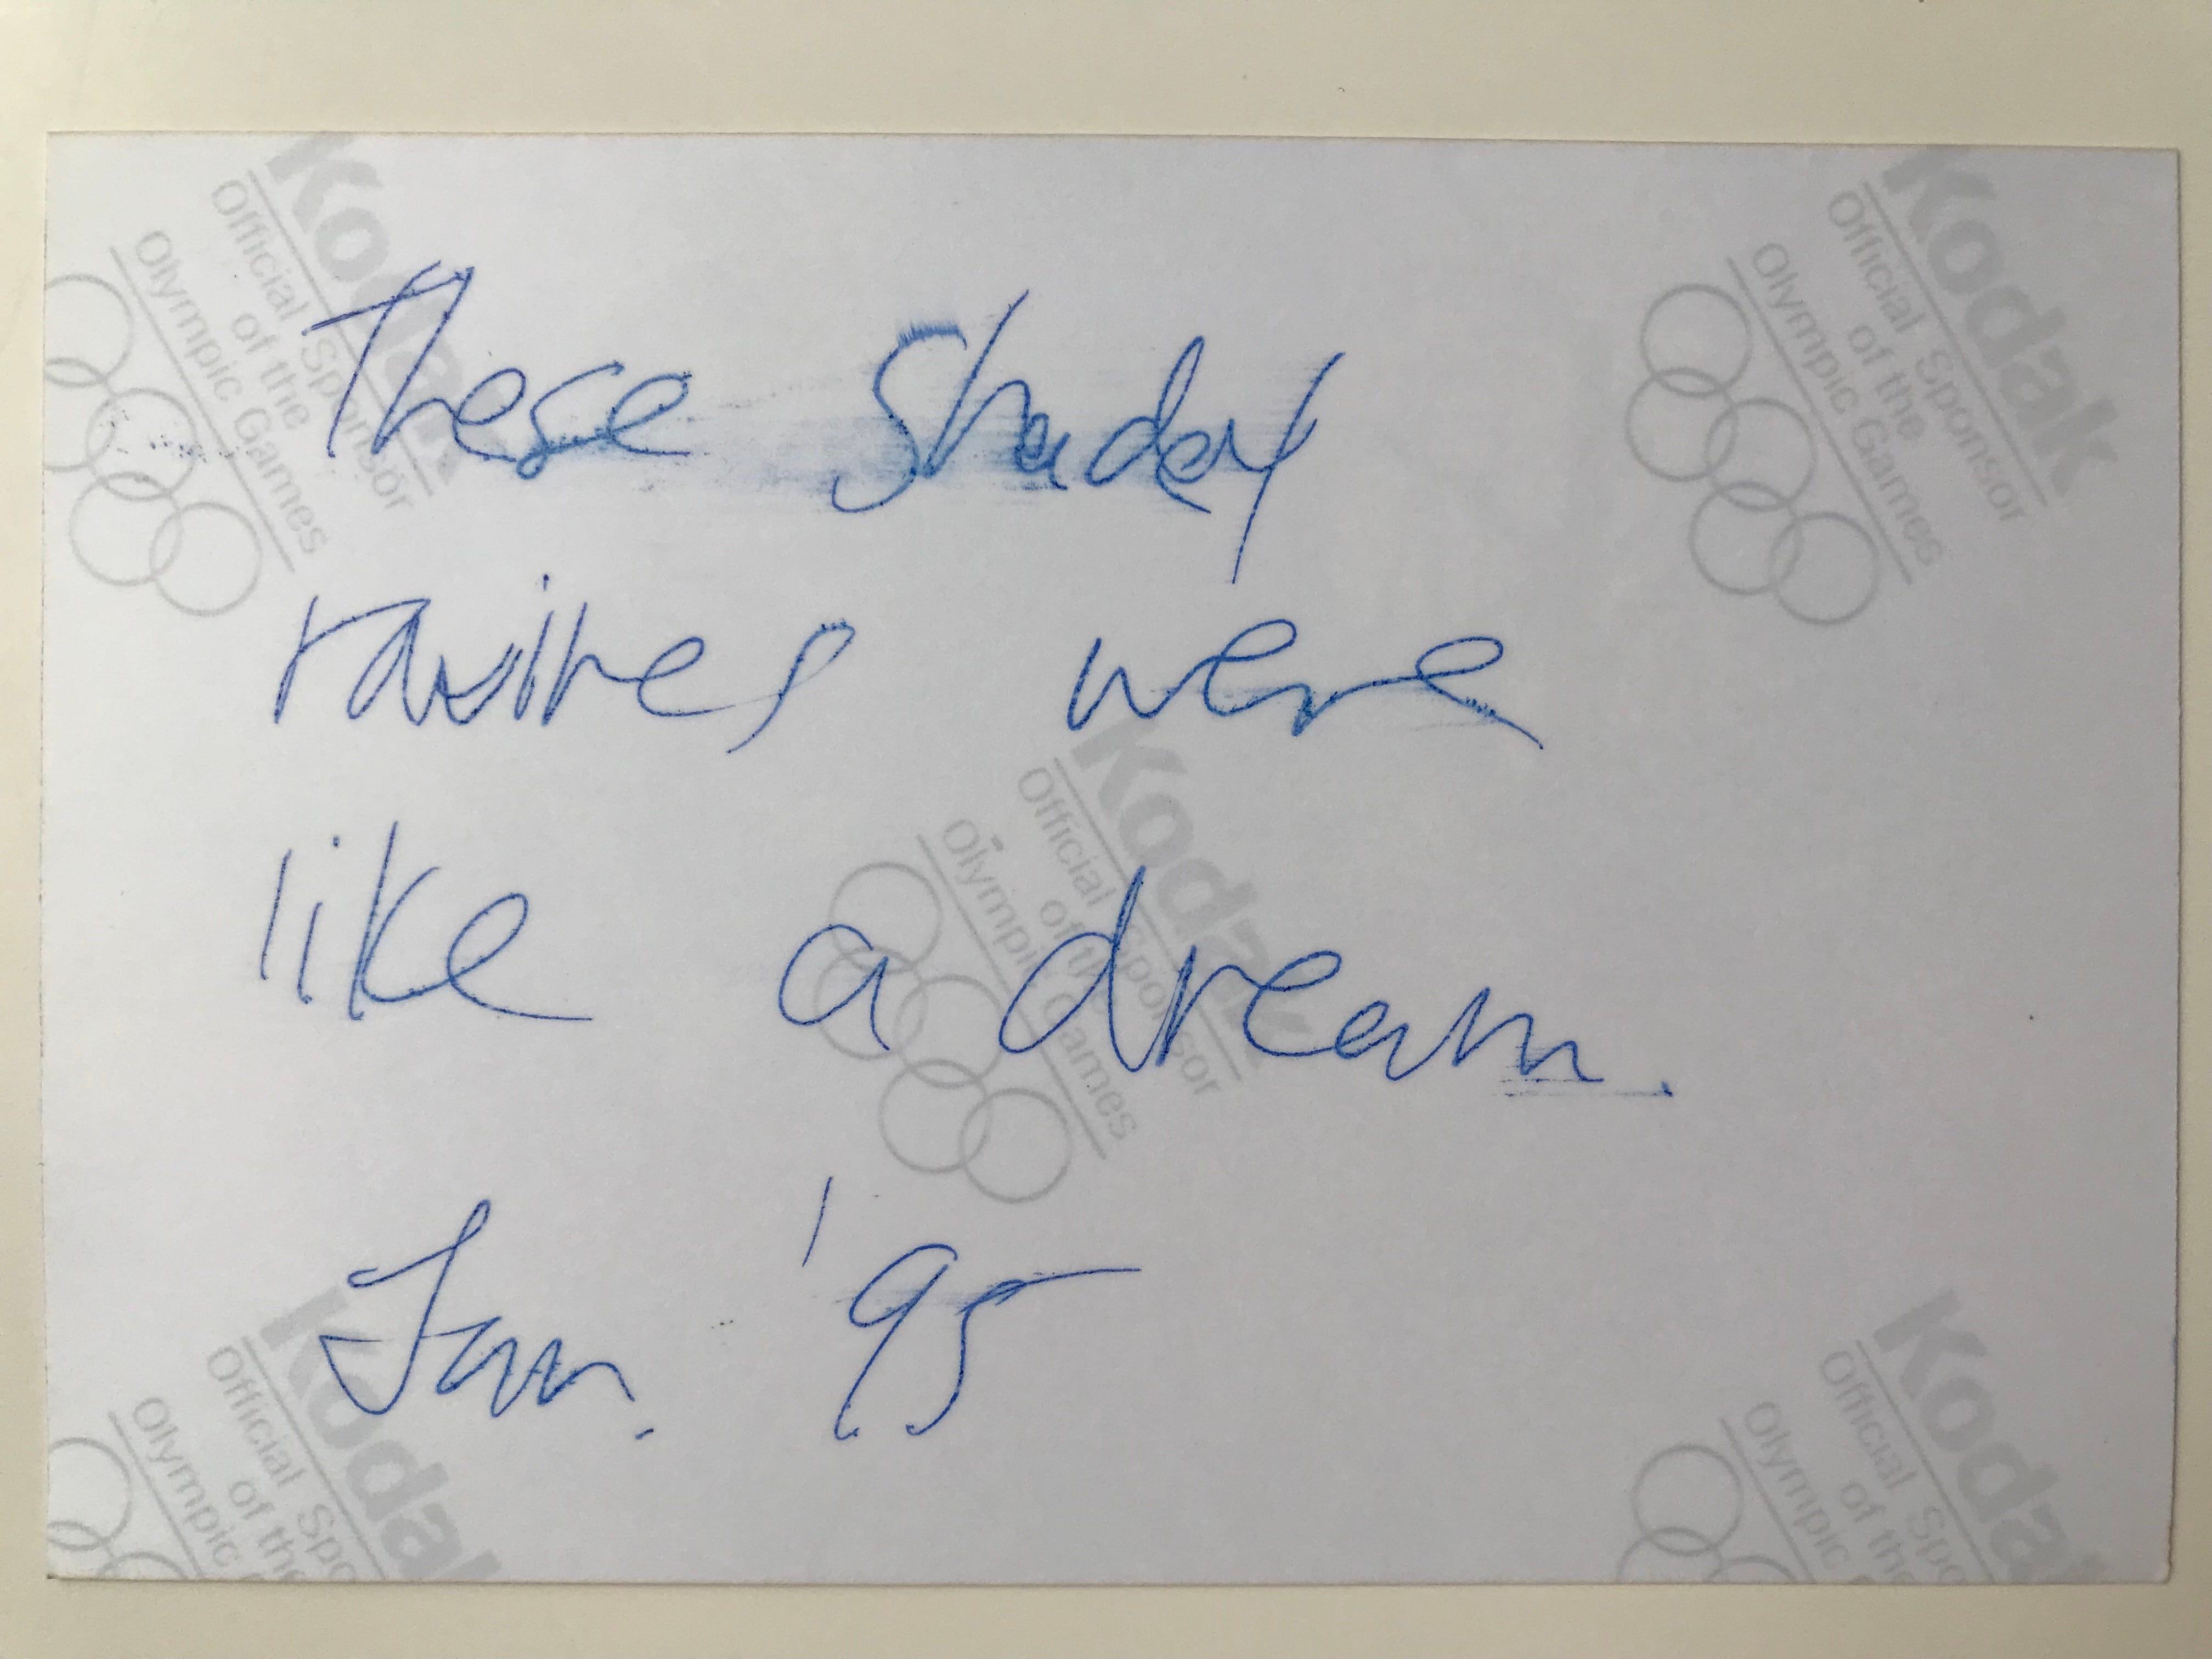 These Shadey
ravines were
like a dream.
Jan. '95
Kodak
Official Sponsor
of the
Olympic Games
Kodak
Official Sponsor
of the
Olympic Games
Kodak
Official Sponsor
of the
Olympic Games
Kodak
Official Spo
of the
Olympic
Kodak
Official Spo
of the
Olympic